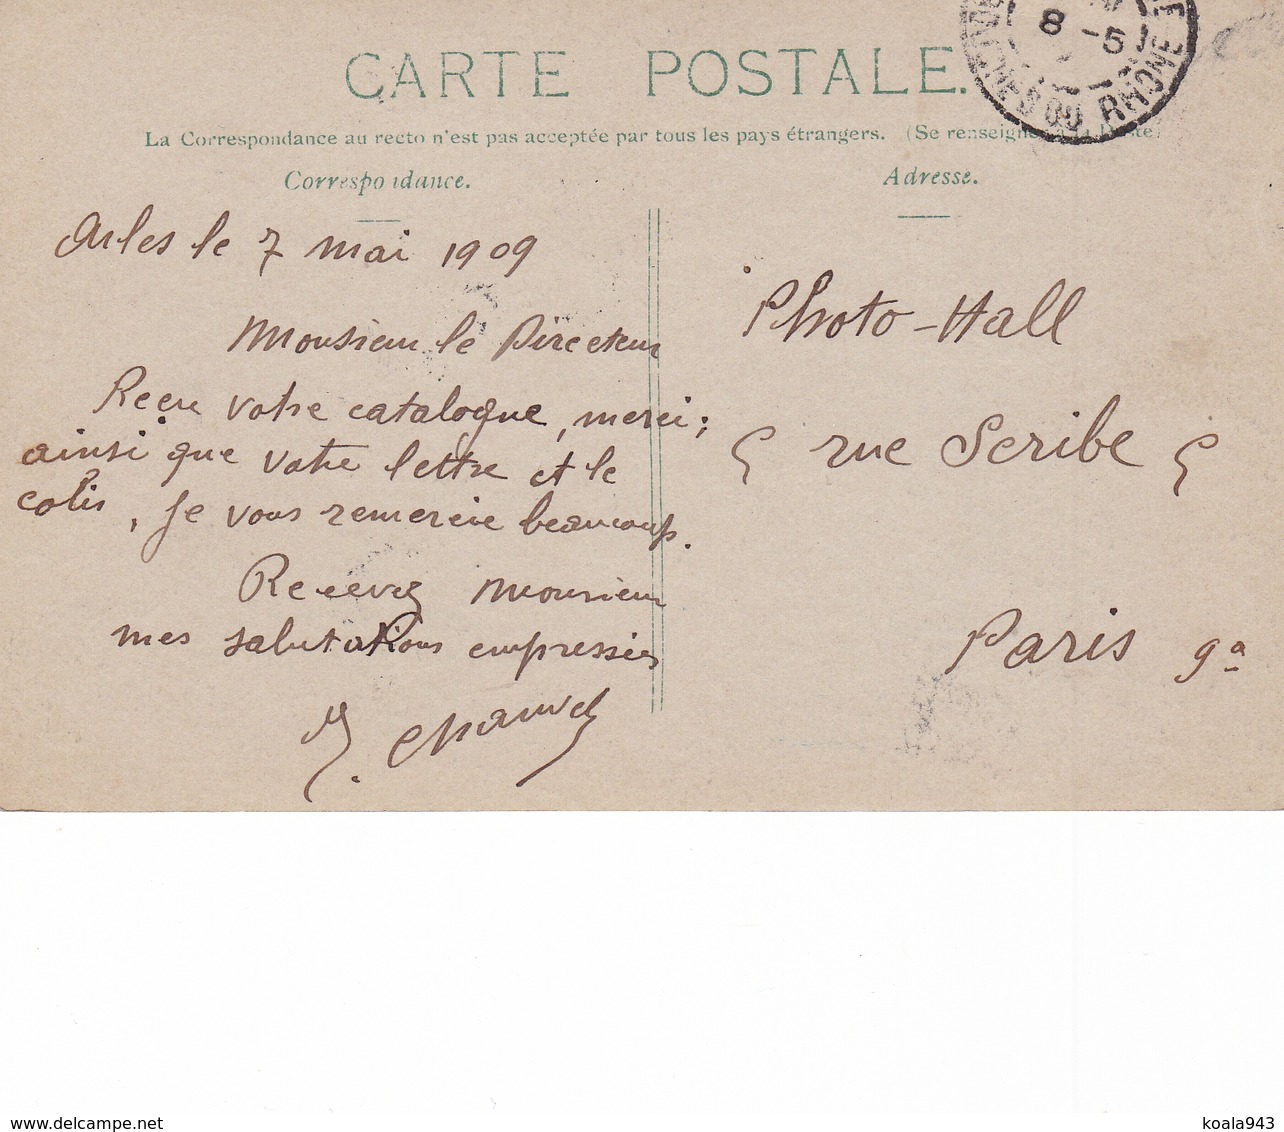 CARTE POSTALE.
8 -5
BOUCHES DU RHONE
La Correspondance au recto n'est pas acceptée par tous les pays étrangers. (Se renseigner à la Poste)
Correspondance.
Arles le 7 mai 1909
Monsieur le Directeur
Reçu votre catalogue, merci;
ainsi que votre lettre et le
colis, je vous remercie beaucoup.
Recevez Monsieur
mes salutations empressées
Chauvet
Adresse.
Photo-Hall
( rue Scribe )
Paris 9a
www.delcampe.net
koala943